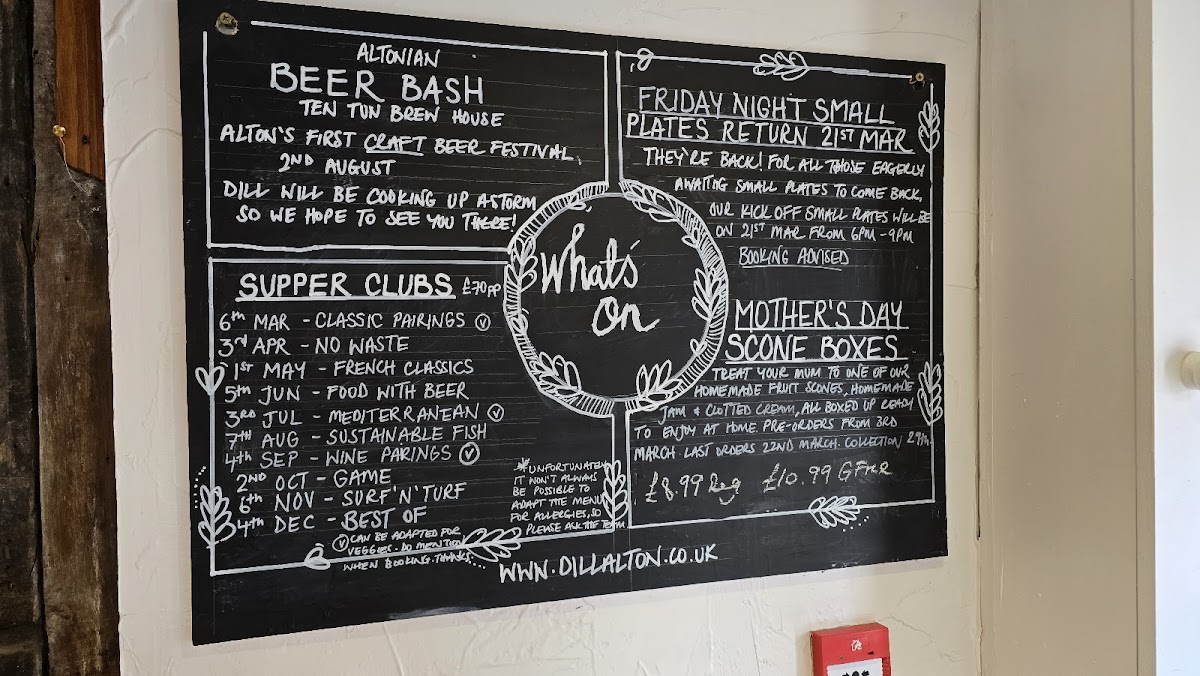 ALTONIAN
BEER BASH
TEN TUN BREW HOUSE
ALTON'S FIRST CRAFT BEER FESTIVAL,
2ND AUGUST
DILL WILL BE COOKING UP A STORM
SO WE HOPE TO SEE YOU THERE!
SUPPER CLUBS £70PP
6th MAR - CLASSIC PAIRINGS Ⓥ
3rd APR - NO WASTE
1ST MAY - FRENCH CLASSICS
5th JUN - FOOD WITH BEER
3RD JUL - MEDITERRANEAN Ⓥ
7TH AUG - SUSTAINABLE FISH
4TH SEP - WINE PARINGS Ⓥ
2ND OCT - GAME
6th NOV - SURF'N'TURF
4TH DEC - BEST OF
Ⓥ CAN BE ADAPTED FOR
VEGGIES. DO MENTION
WHEN BOOKING. THANKS...
*UNFORTUNATELY
IT WON'T ALWAYS
BE POSSIBLE TO
ADAPT THE MENU
FOR ALLERGIES, SO
PLEASE ASK THE TEAM
What's
on
FRIDAY NIGHT SMALL
PLATES RETURN 21ST MAR
THEY'RE BACK! FOR ALL THOSE EAGERLY
AWAITING SMALL PLATES TO COME BACK,
OUR KICK OFF SMALL PLATES WILL BE
ON 21ST MAR FROM 6PM - 9PM
BOOKING ADVISED
MOTHER'S DAY
SCONE BOXES
TREAT YOUR MUM TO ONE OF OUR
HOMEMADE FRUIT SCONES, HOMEMADE
JAM & CLOTTED CREAM, ALL BOXED UP READY
TO ENJOY AT HOME. PRE-ORDERS FROM 3RD
MARCH. LAST ORDERS 22ND MARCH. COLLECTION 29th.
£8.99 Reg £10.99 GFree
WWW.DILLALTON.CO.UK